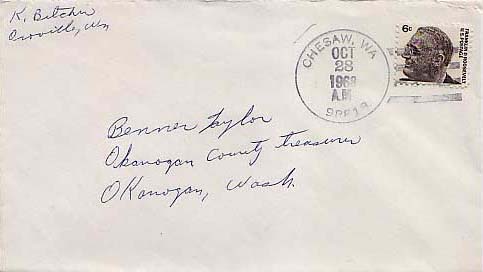 K. Betcher
Oroville, Wn
CHESAW, WA
OCT
28
1968
A.M.
9RF18
6c
FRANKLIN D. ROOSEVELT
U.S. POSTAGE
Benner Taylor
Okanogan County treasurer
Okanogan, Wash.